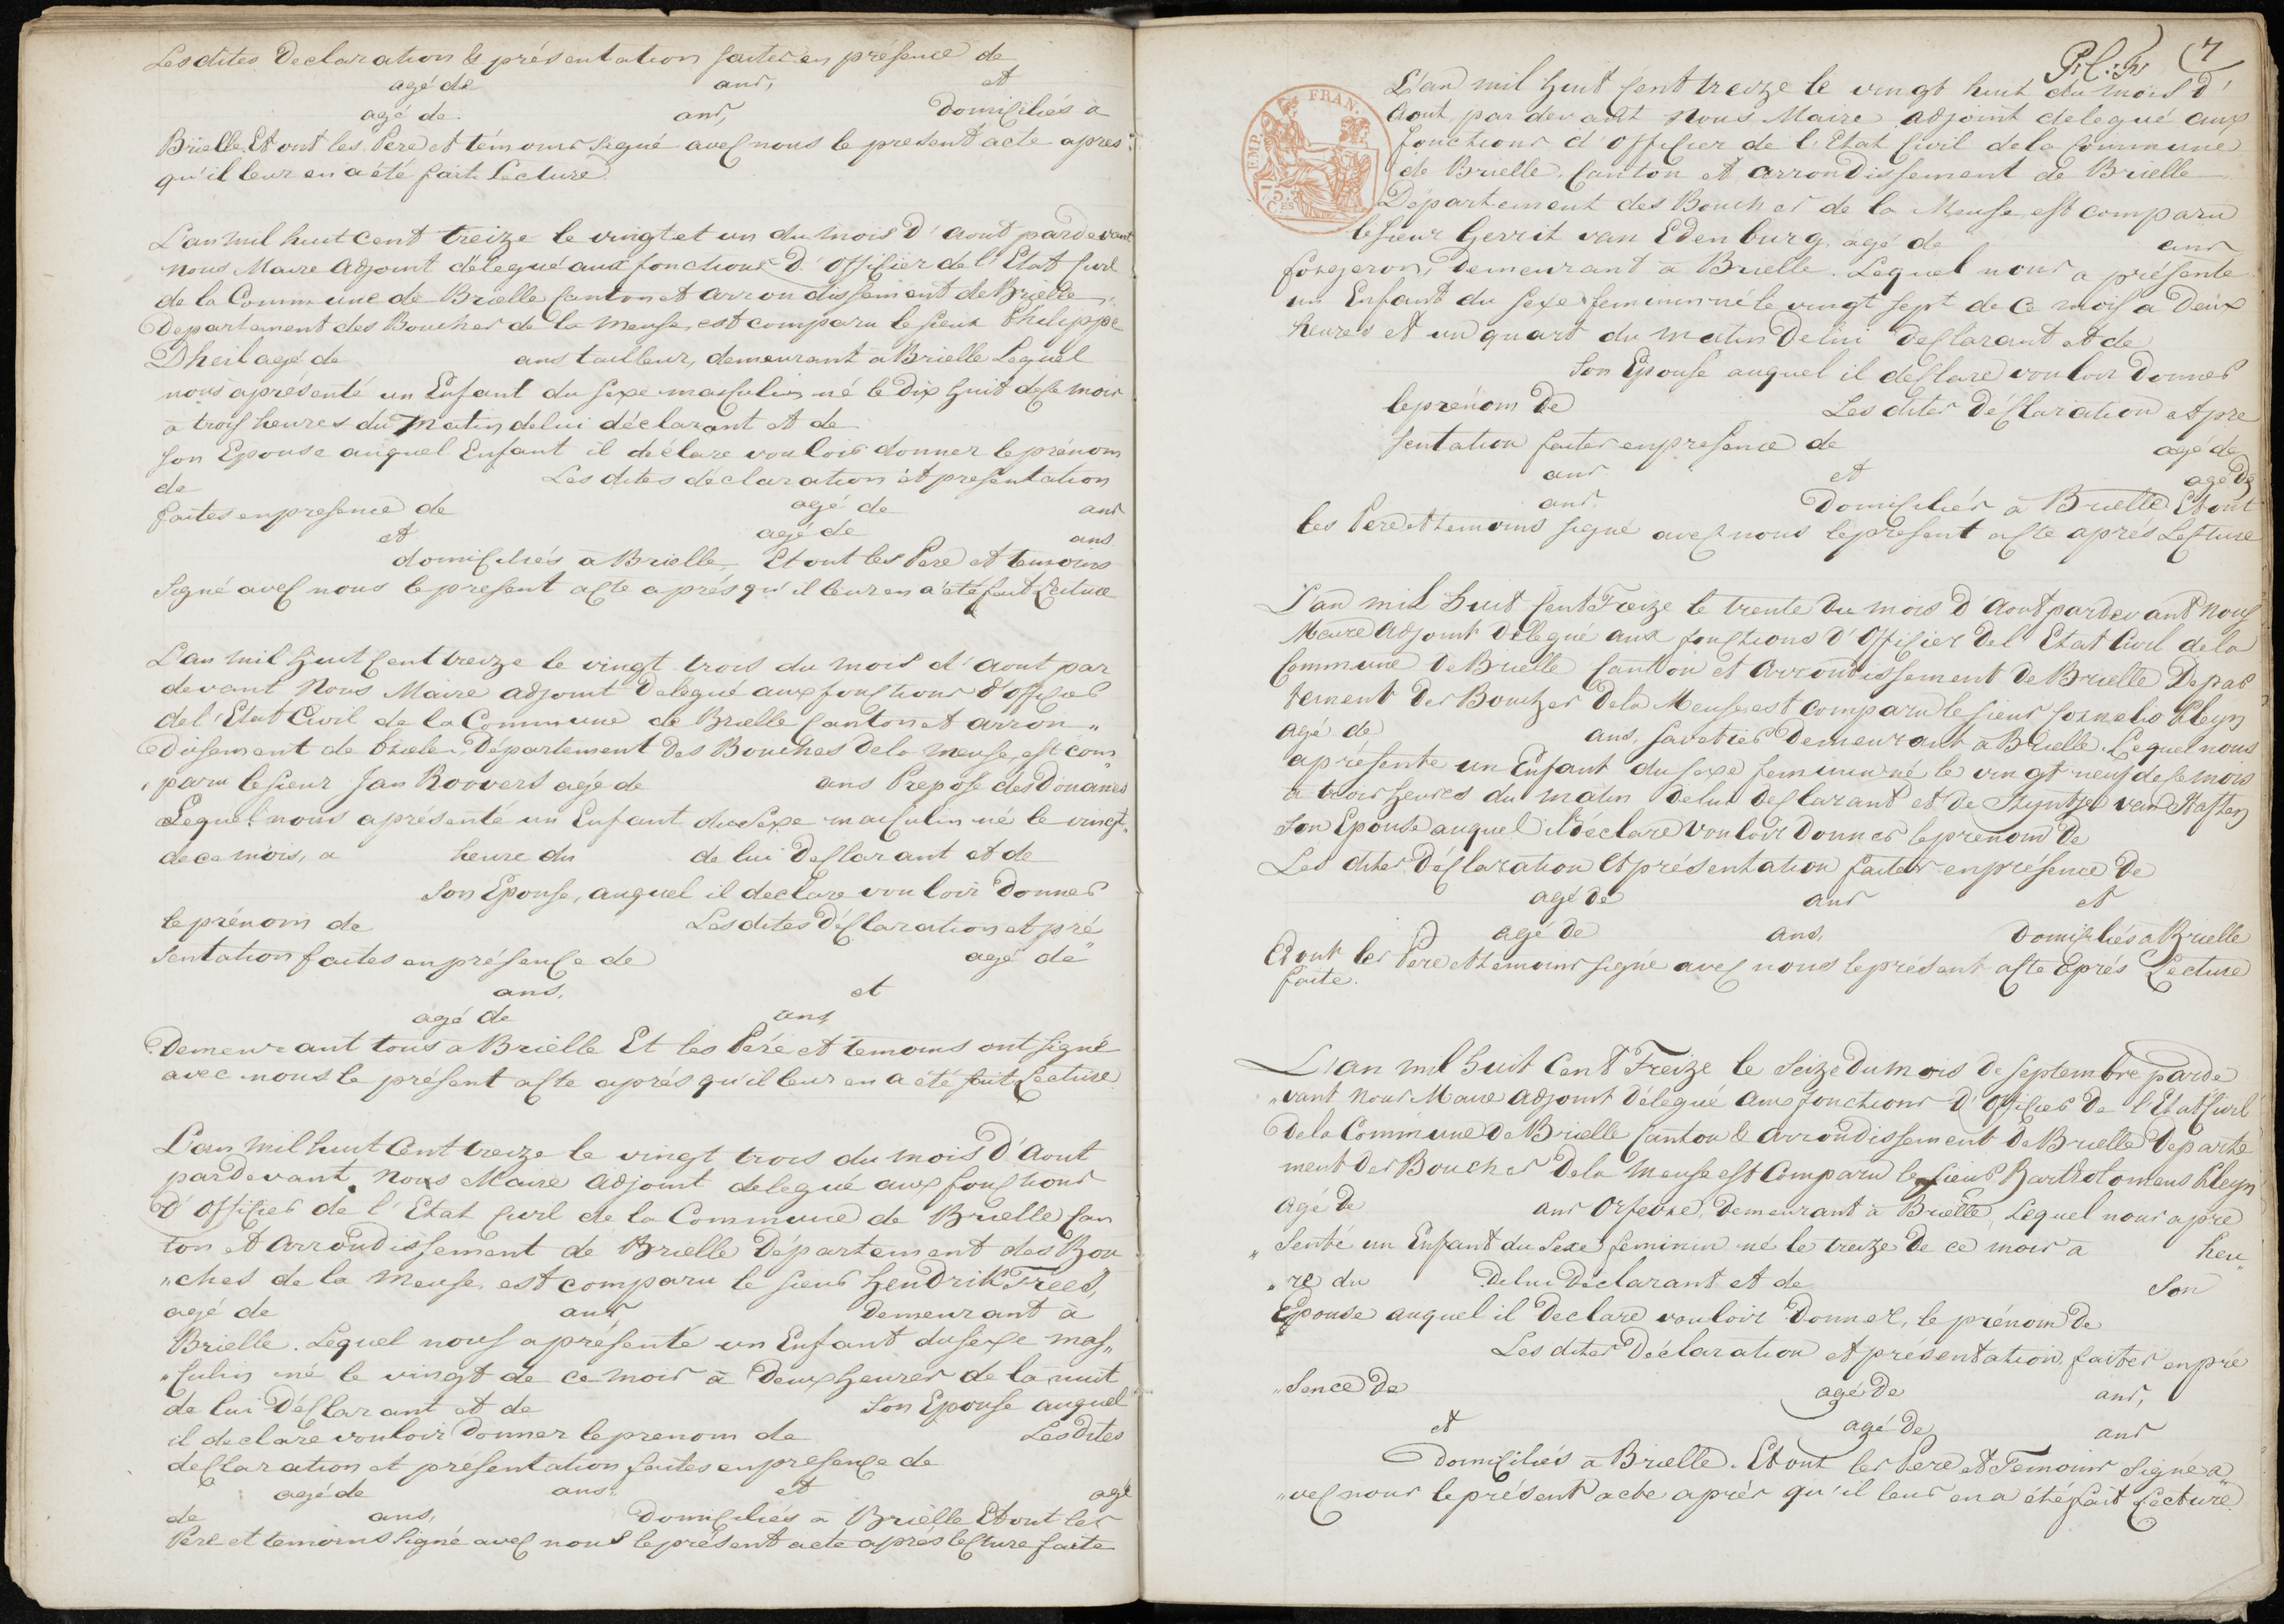 Lesdites Declaration & présentation faites en présence de
agé de ans, et
agé de ans, Domiciliés à
Brielle, Et ont les Pere et témoins signé avec nous le present acte apres
qu'il leur en a été fait Lecture.
L'an mil huit cent treize le vingt et un du mois D'Aout pardevant
nous Maire Adjoint délégué aux fonctions D'Officier de l'Etat Civil
de la Commune de Brielle Canton et Arrondissement de Brielle,
Departement des Bouches de la Meuse, est comparu le sieur Philippe
Dheil agé de ans tailleur, demeurant à Brielle Lequel
nous a présenté un Enfant du sexe masculin né le Dix huit de ce mois
à trois heures du Matin de lui déclarant et de
son Epouse auquel Enfant il déclare vouloir donner le prénom
de Lesdites déclaration et presentation
faites en presence de agé de ans
et agé de ans
domiciliés à Brielle, Et ont les Pere et temoins
signé avec nous le present acte après qu'il leur en a été fait Lecture
L'an mil huit Cent treize le vingt trois du mois d'Aout par
devant Nous Maire Adjoint Delegué aux fonctions d'Officier
de l'Etat Civil de la Commune de Brielle Canton et Arron„
dissement de Briele, Département Des Bouches de la Meuse, est com„
„paru le sieur Jan Roovers agé de ans Preposé des Douanes
Lequel nous a présenté un Enfant du Sexe masculin né le vingt„
de ce mois, à heure du de lui Declarant et de
Son Epouse, auquel il declare vouloir Donner
le prénom de Lesdites Déclaration et pré
sentation faites en présence de agé de
ans, et
agé de ans,
Demeurant tous à Brielle Et les Pére et temoins ont signé
avec nous le présent acte après qu'il leur en a été fait Lecture.
L'an mil huit Cent treize le vingt trois du mois D'Aout
pardevant Nous Maire Adjoint delegué aux fonctions
D'Officier de l'Etat Civil de la Commune de Brielle Can
ton et Arrondissement de Brielle Département des Bou
„ches de la Meuse, est comparu le sieur Hendrik Frees,
agé de ans Demeurant à
Brielle. Lequel nous a présenté un Enfant du sexe mas„
„culin né le vingt de ce mois à Deux heures de la nuit
de lui Déclarant et de Son Epouse auquel
il declare vouloir Donner le prenom de Lesdites
declaration et présentation faites en presence de
agé de ans. et agé
de ans, Domiciliés à Brielle Et ont les
Pere et temoins signé avec nous le présent acte après lecture faite
7
L'an mil huit Cent treize le vingt huit du mois d'
Aout, par devant Nous Maire Adjoint delegué aux
fonctions d'Officier de l'Etat Civil de la Commune
de Brielle, Canton et Arrondissement de Brielle
EMP. FRAN.
Département des Bouches de la Meuse, est comparu
le sieur Gerrit van Edenburg agé de ans
forgeron, Demeurant à Brielle. Lequel nous a présenté
un Enfant du Sexe feminin né le vingt sept de ce mois à Deux
heures et un quart du matin De lui Declarant et de
Son Epouse auquel il déclare vouloir Donner
le prénom de Lesdites Déclaration et pre
sentation faites en presence de agé de
ans et agé de
ans. Domiciliés à Brielle Et ont
les Pere et temoins signé avec nous le present acte après Lecture
L'an mil huit Cent Treize le trente Du mois D'Aout pardevant Nous
Maire Adjoint Delegué aux fonctions d'Officier De l'Etat Civil de la
Commune De Brielle Canton et Arrondissement De Brielle Depar
tement Des Bouches De la Meuse, est comparu le sieur Cornelis Kleyn
agé de ans, Savetier Demeurant à Brielle. Lequel nous
a présenté un Enfant du sexe feminin né le vingt neuf de ce mois
à trois heures du matin De lui Declarant et De Stijntje van Staften
Son Epouse auquel il déclare vouloir donner le prénom De
Les dites Déclaration Et présentation faites en présence De
agé de ans et
agé De ans, Domiciliés à Brielle
Et ont les Pere et temoins signé avec nous le présent acte après Lecture
faite.
L'an mil huit Cent Treize le Seize Du mois De Septembre parde
„vant Nous Maire Adjoint Délegué Aux fonctions D'Officier De l'Etat Civil
De la Commune De Brielle Canton & Arrondissement De Brielle Departe
ment Des Bouches De la Meuse est Comparu le sieur Bartholomeus Kleyn
agé De ans Orfevre, Demeurant à Brielle, Lequel nous a pre
„senté un Enfant du Sexe feminin né le treize De ce mois à heu„
„re du De lui Déclarant et de Son
Epouse auquel il Declare vouloir Donner, le prénom De
Les dites Déclaration et présentation, faites en pré
„sence De agé De ans,
et agé De ans
Domiciliés à Brielle. Et ont les Pere et Temoins Signé a„
„vec nous le présent acte après qu'il leur en a été fait Lecture.